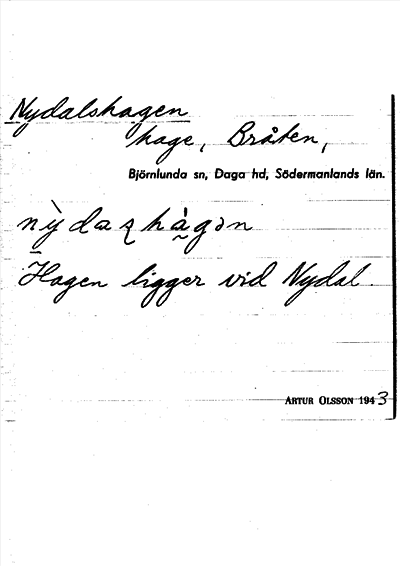 Nydalshagen
hage, Bråten,
Björnlunda sn, Daga hd, Södermanlands län.
Hagen ligger vid Nydal.
ARTUR OLSSON 1943